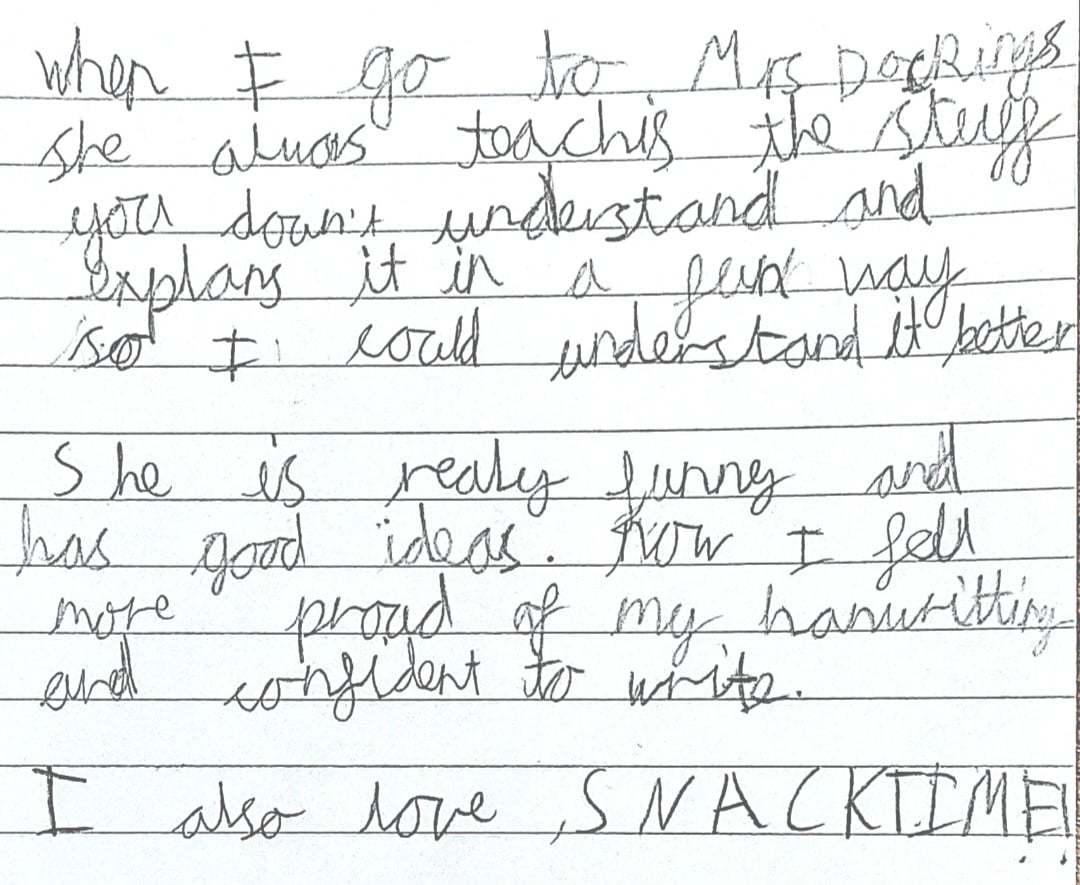 when I go to Mrs Dockings
she alwas teachis the stuff
you doun't understand and
explans it in a fun way
so I could understand it better
She is realy funny and
has good ideas. Now I fell
more proud of my hanwritting
and confident to write.
I also love, SNACKTIME!!